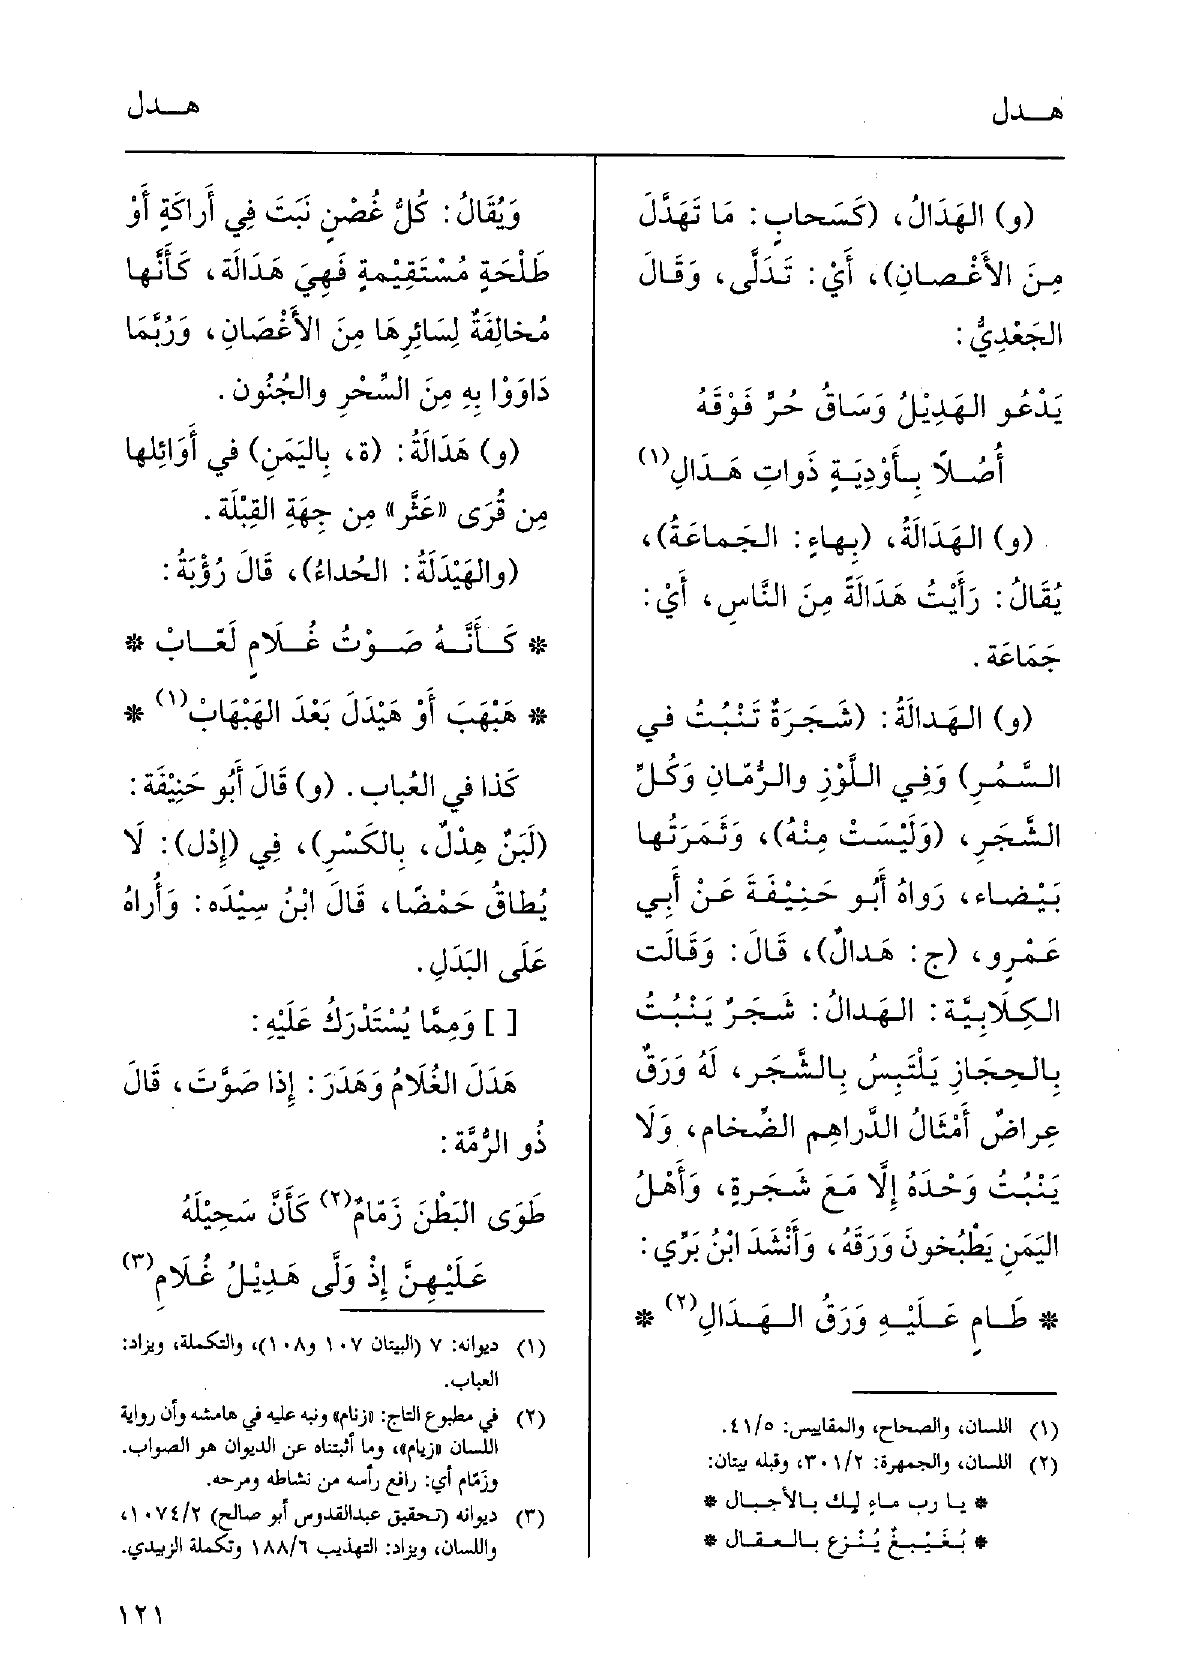 هـدل
هـدل
(و) الهَدَالُ، (كَسَحابٍ: مَا تَهَدَّلَ
مِنَ الأَغْصانِ)، أَيْ: تَدَلَّى، وَقَالَ
الجَعْدِيُّ:
يَدْعُو الهَدِيْلُ وَسَاقُ حُرٍّ فَوْقَهُ
أُصُلًا بِأَوْدِيَةٍ ذَواتِ هَدَالِ(١)
(و) الهَدَالَةُ، (بِهاءٍ: الجَماعَةُ)،
يُقَالُ: رَأَيْتُ هَدَالَةً مِنَ النَّاسِ، أَيْ:
جَمَاعَة.
(و) الهَدالَةُ: (شَجَرَةٌ تَنْبُتُ في
السَّمُرِ) وَفِي اللَّوْزِ والرُّمّانِ وَكُلِّ
الشَّجَرِ، (وَلَيْسَتْ مِنْهُ)، وَثَمَرَتُها
بَيْضاء، رَواهُ أَبُو حَنِيْفَةَ عَنْ أَبِي
عَمْرٍو، (ج: هَدالٌ)، قَالَ: وَقَالَت
الكِلَابِيَّة: الهَدالُ: شَجَرٌ يَنْبُتُ
بِالحِجَازِ يَلْتَبِسُ بِالشَّجَر، لَهُ وَرَقٌ
عِراضٌ أَمْثَالُ الدَّراهِمِ الضِّخام، وَلَا
يَنْبُتُ وَحْدَهُ إِلَّا مَعَ شَجَرةٍ، وَأَهْلُ
اليَمَنِ يَطْبُخونَ وَرَقَهُ، وَأَنْشَدَ ابْنُ بَرِّي:
* طَامٍ عَلَيْهِ وَرَقُ الهَدَالِ(٢) *
(١) اللسان، والصحاح، والمقاييس: ٤١/٥.
(٢) اللسان، والجمهرة: ٣٠١/٢، وقبله بيتان:
* يا رب ماءٍ لك بالأجبال *
* بُغَيْبِغٌ يُنْزع بالعقال *
وَيُقَالُ: كُلُّ غُصْنٍ نَبَتَ فِي أَراكَةٍ أَوْ
طَلْحَةٍ مُسْتَقِيْمةٍ فَهِيَ هَدَالَة، كَأَنَّها
مُخالِفَةٌ لِسَائِرِهَا مِنَ الأَغْصَانِ، وَرُبَّمَا
دَاوَوْا بِهِ مِنَ السِّحْرِ والجُنُون.
(و) هَدَالَةُ: (ة، بِاليَمَنِ) في أَوَائِلِها
مِن قُرَى «عَثَّر» مِن جِهَةِ القِبْلَة.
(والهَيْدَلَةُ: الحُداءُ)، قَالَ رُؤْبَةُ:
* كَأَنَّهُ صَوْتُ غُلَامٍ لَعّابْ *
* هَبْهَبَ أَوْ هَيْدَلَ بَعْدَ الهَبْهَابْ(١) *
كَذا في العُباب. (و) قَالَ أَبُو حَنِيْفَة:
(لَبَنٌ هِدْلٌ، بِالكَسْرِ)، فِي (إِدْل): لَا
يُطاقُ حَمْضًا، قَالَ ابْنُ سِيْدَه: وَأُراهُ
عَلَى البَدَلِ.
[ ] وَمِمَّا يُسْتَدْرَكُ عَلَيْهِ:
هَدَلَ الغُلَامُ وَهَدَرَ: إِذا صَوَّتَ، قَالَ
ذُو الرُّمَّة:
طَوَى البَطْنَ زَمّامٌ(٢) كَأَنَّ سَحِيْلَهُ
عَلَيْهِنَّ إِذْ وَلَّى هَدِيْلُ غُلَامِ(٣)
(١) ديوانه: ٧ (البيتان ١٠٧ و١٠٨)، والتكملة، ويزاد:
العباب.
(٢) في مطبوع التاج: «زنام» ونبه عليه في هامشه وأن رواية
اللسان «زيام»، وما أثبتناه عن الديوان هو الصواب.
وزَمّام أي: رافع رأسه من نشاطه ومرحه.
(٣) ديوانه (تحقيق عبدالقدوس أبو صالح) ١٠٧٤/٢،
واللسان، ويزاد: التهذيب ١٨٨/٦ وتكملة الزبيدي.
١٢١